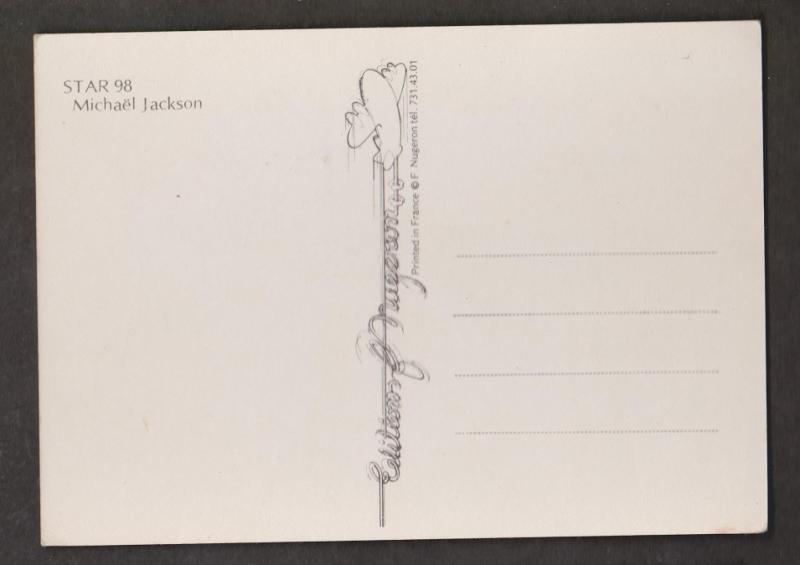 STAR 98
Michaël Jackson
Editions f Nugeron
Printed in France © F Nugeron tél. 731.43.01